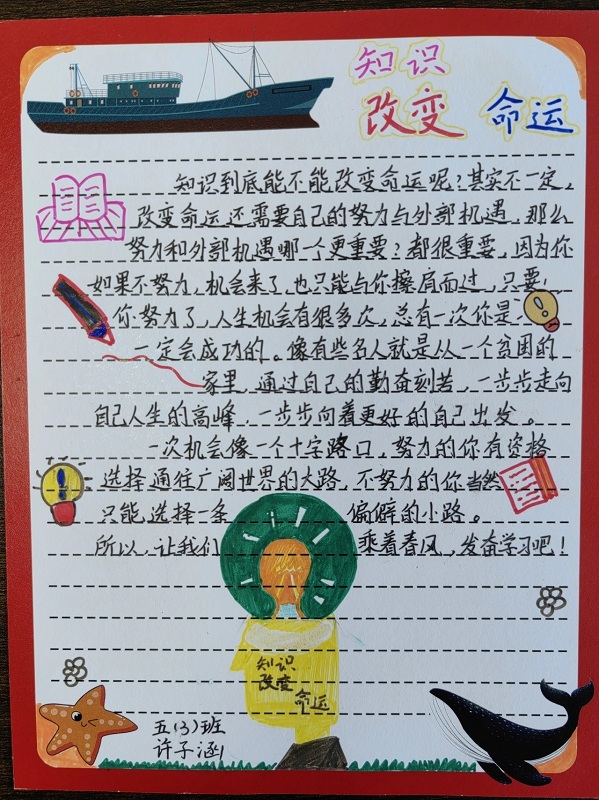 知识
改变 命运
知识到底能不能改变命运呢？其实不一定，
改变命运还需要自己的努力与外部机遇，那么
努力和外部机遇哪一个更重要？都很重要，因为你
如果不努力，机会来了，也只能与你擦肩而过，只要
你努力了，人生机会有很多次，总有一次你是
一定会成功的。像有些名人就是从一个贫困的
家里，通过自己的勤奋刻苦，一步步走向
自己人生的高峰，一步步向着更好的自己出发。
一次机会像一个十字路口，努力的你有资格
选择通往广阔世界的大路，不努力的你当然
只能选择一条偏僻的小路。
所以，让我们乘着春风，发奋学习吧！
知识
改变
命运
五(3)班
许子涵